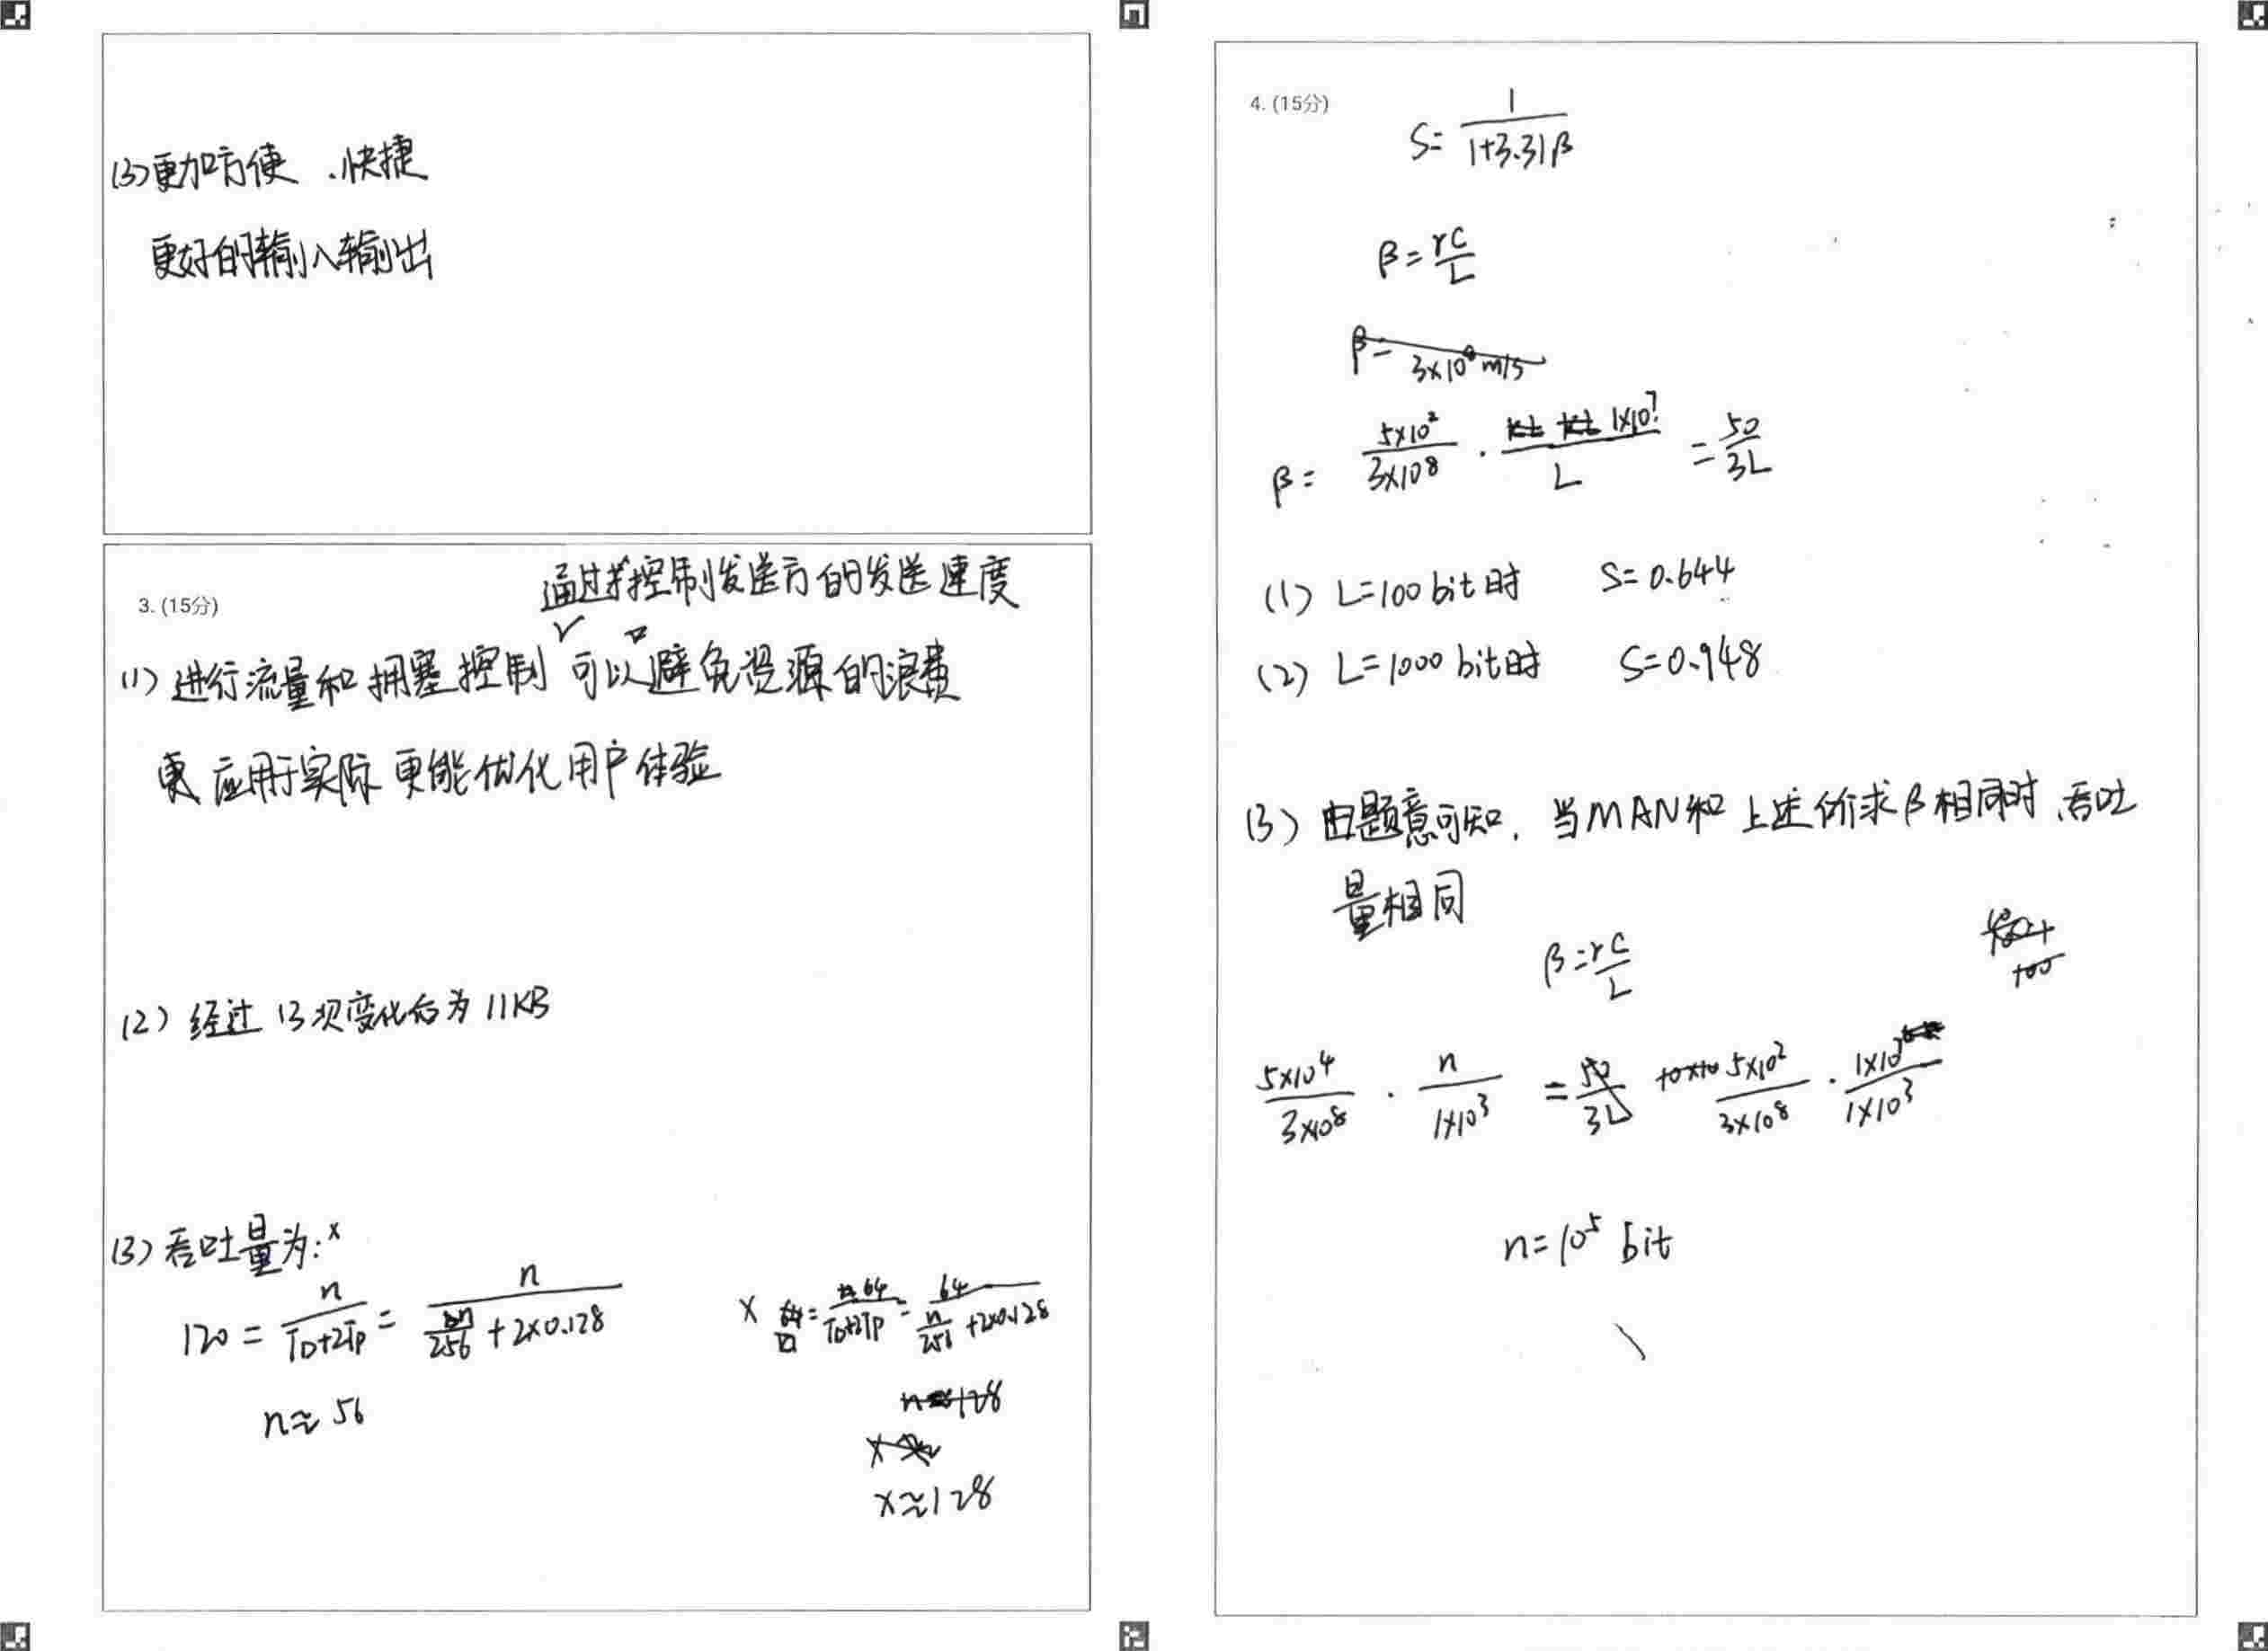 (3) 更加方便、快捷
更好的输入输出
3. (15分)
通过控制发送方的发送速度
(1) 进行流量和拥塞控制 可以避免资源的浪费
更应用于实际 更能优化用户体验
(2) 经过13次变化后为11KB
(3) 吞吐量为: x
120 = n/(TD+2Tp) = n/(n/256 + 2×0.128)
n≈56
x = 64/(TD+2Tp) = 64/(n/256 + 2×0.128)
x≈128
4. (15分)
S= 1/(1+3.31β)
β= rC/L
β= 3×10⁸ m/s
β= 5×10²/3×10⁸ · 1×10⁷/L = 50/3L
(1) L=100bit时 S=0.644
(2) L=1000bit时 S=0.948
(3) 由题意可知, 当MAN和上述所求β相同时、吞吐
量相同
β= rC/L
5×10⁴/3×10⁸ · n/1×10³ = 50/3L 5×10²/3×10⁸ · 1×10⁷/1×10³
n=10⁵ bit